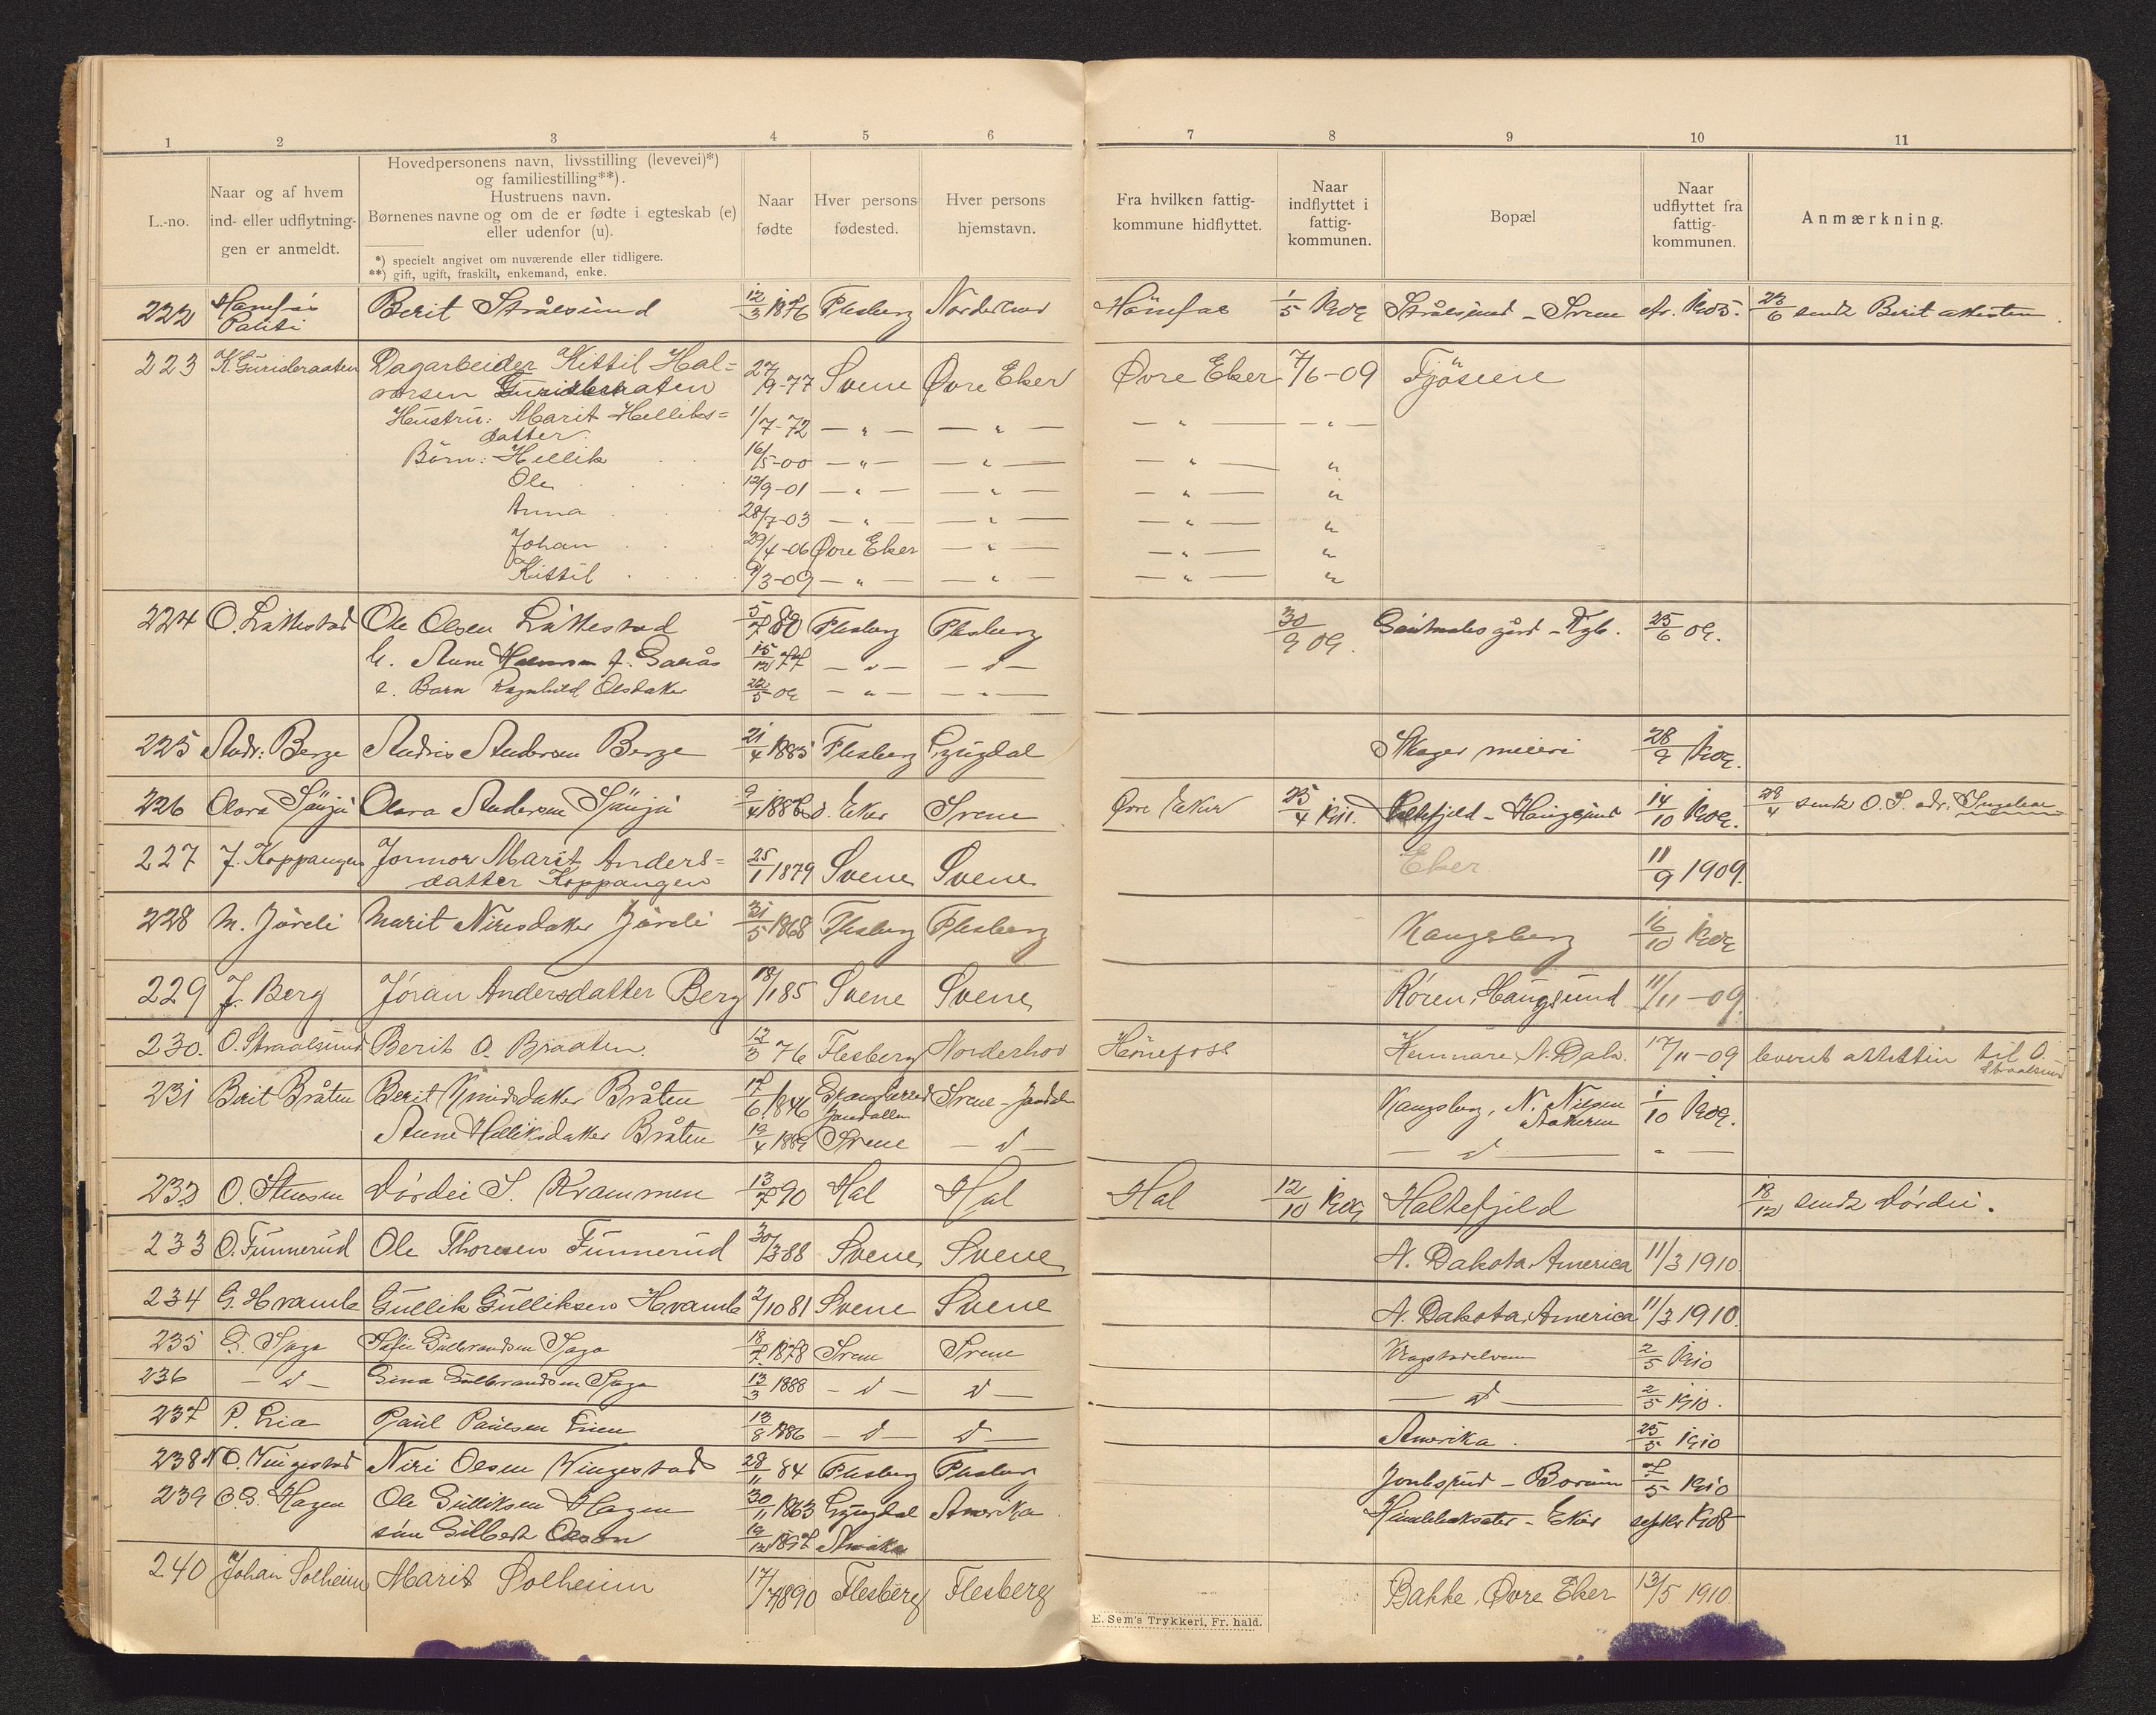 1 2 3 4 5 6 7 8 9 10 11
L.-no.
Naar og af hvem
ind- eller udflytning-
gen er anmeldt.
Hovedpersonens navn, livsstilling (levevei)*)
og familiestilling**).
Hustruens navn.
Børnenes navne og om de er fødte i egteskab (e)
eller udenfor (u).
*) specielt angivet om nuværende eller tidligere.
**) gift, ugift, fraskilt, enkemand, enke.
Naar
fødte
Hver persons
fødested.
Hver persons
hjemstavn.
Fra hvilken fattig-
kommune hidflyttet.
Naar
indflyttet i
fattig-
kommunen.
Bopæl
Naar
udflyttet fra
fattig-
kommunen.
Anmærkning.
222 Hønefos Politi Berit Strålsund 12/3 1876 Flesberg Norderhov Hønefos 1/5 1909 Strålsund - Svene 23/6 sendt Berit attesten.
223 K. Gurideraaten Dagarbeider Kittil Hal= 27/9-77 Svene Øvre Eker Øvre Eker 7/6-09 Fjøseie
vorsen Gurideraaten
Hustru: Marit Helliks= 1/7-72 — " — — " — — " — — " —
datter
Børn: Hellik 16/5-00 — " — — " — — " — "
Ole 12/9-01 — " — — " — — " — "
Anna 28/7-03 — " — — " — — " — "
Johan 29/4-06 Øvre Eker — " — — " — "
Kittil 9/3-09 — " — — " — — " — "
224 O. Låttestad Ole Olsen Låttestad 5/7 80 Flesberg Flesberg 30/9 09. gård - Kgb. 25/6 09.
h. Anne f. Garås 15/12 77 — " — — " —
e. Barn Ragnhild Olsdatter 22/5 09 — " — — " —
225 Andr. Berge Andris Andersen Berge 21/4 1885 Flesberg Lyngdal Skoger meieri 28/9 1909.
226 Olava Andersen Ø. Eker Svene Øvre Eker 25/4 1911. Holtefjeld - Haugsund 14/10 1909. 28/4 sendt O. S. adr.
227 J. Koppangen Jormor Marit Anders= 25/1 1879 Svene Svene Eker 11/9 1909.
datter Koppangen
228 M. Jøreli Marit Nirisdatter Jøreli 31/5 1868 Flesberg Flesberg Kongsberg 16/10 1909
229 J. Berg Jöran Andersdatter Berg 18/1 85 Svene Svene Røren, Haugsund 11/11-09.
230. O. Straalsund Berit O. Braaten. 12/3 76 Flesberg Norderhov Hønefoss Kenmare N. Dak. 17/11-09 leveret attesten til O. Straalsund
231 Berit Bråten Berit Knudsdatter Bråten 17/6 1846 Jondalen Svene - Jondalen Kongsberg, N. Nilsen 1/10 1909.
Anne Helliksdatter Bråten 19/4 1889 Svene — " — — " — " —
232 O. Stensen Dordei S. Krammen 13/7 90 Hol Hol Hol 12/10 1909 Holtefjeld 18/12 sendt Dordei.
233 O. Funnerud Ole Thoresen Funnerud 30/3 88 Svene Svene N. Dakota. America 11/3 1910
234 G. Hvamb Gullik Gulliksen Hvamb 2/10 81 Svene Svene N. Dakota. America 11/3 1910.
235 G. Saga Sofie Gulbrandsen Saga 18/7 1878 Svene Svene 2/5 1910
236 — " — Gina Gulbrandsen Saga 13/3 1888 — " — " — — " — 2/5 1910.
237 P. Lia Paul Paulsen Lien 13/8 1886 — " — " — Amerika. 25/5 1910
238 N. O. Vingestad Niri Olsen Vingestad 28/11 84 Flesberg Flesberg Jonsrud - 7/5 1910
239 O. G. Hagen Ole Gulliksen Hagen 30/11 1863 Lyngdal Amerika. - Eker septbr 1908
søn Gilbert Olson 19/12 1897 Amerika
240 Johan Solheim Marit Solheim 17/7 1890 Flesberg Flesberg Bakke, Øvre Eker 13/5 1910.
E. Sem's Trykkeri, Fr. hald.